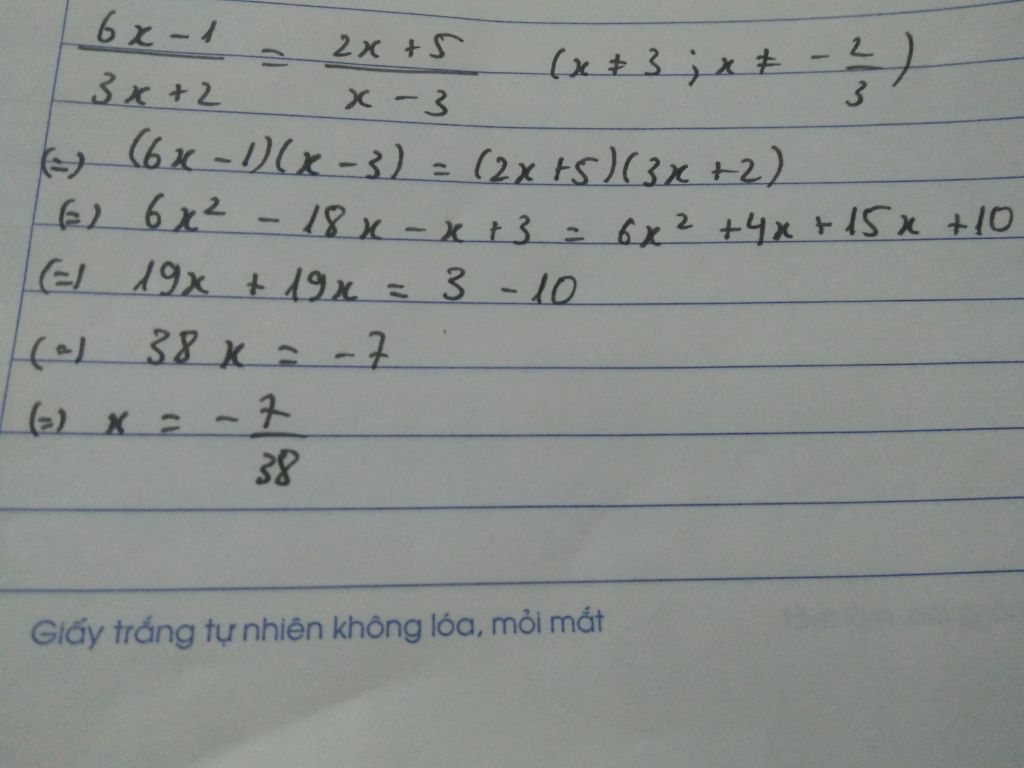 6x - 1 / 3x + 2 = 2x + 5 / x - 3 (x ≠ 3 ; x ≠ - 2/3)
(=) (6x - 1)(x - 3) = (2x + 5)(3x + 2)
(=) 6x² - 18x - x + 3 = 6x² + 4x + 15x + 10
(=) 19x + 19x = 3 - 10
(=) 38x = -7
(=) x = - 7/38
Giấy trắng tự nhiên không lóa, mỏi mắt